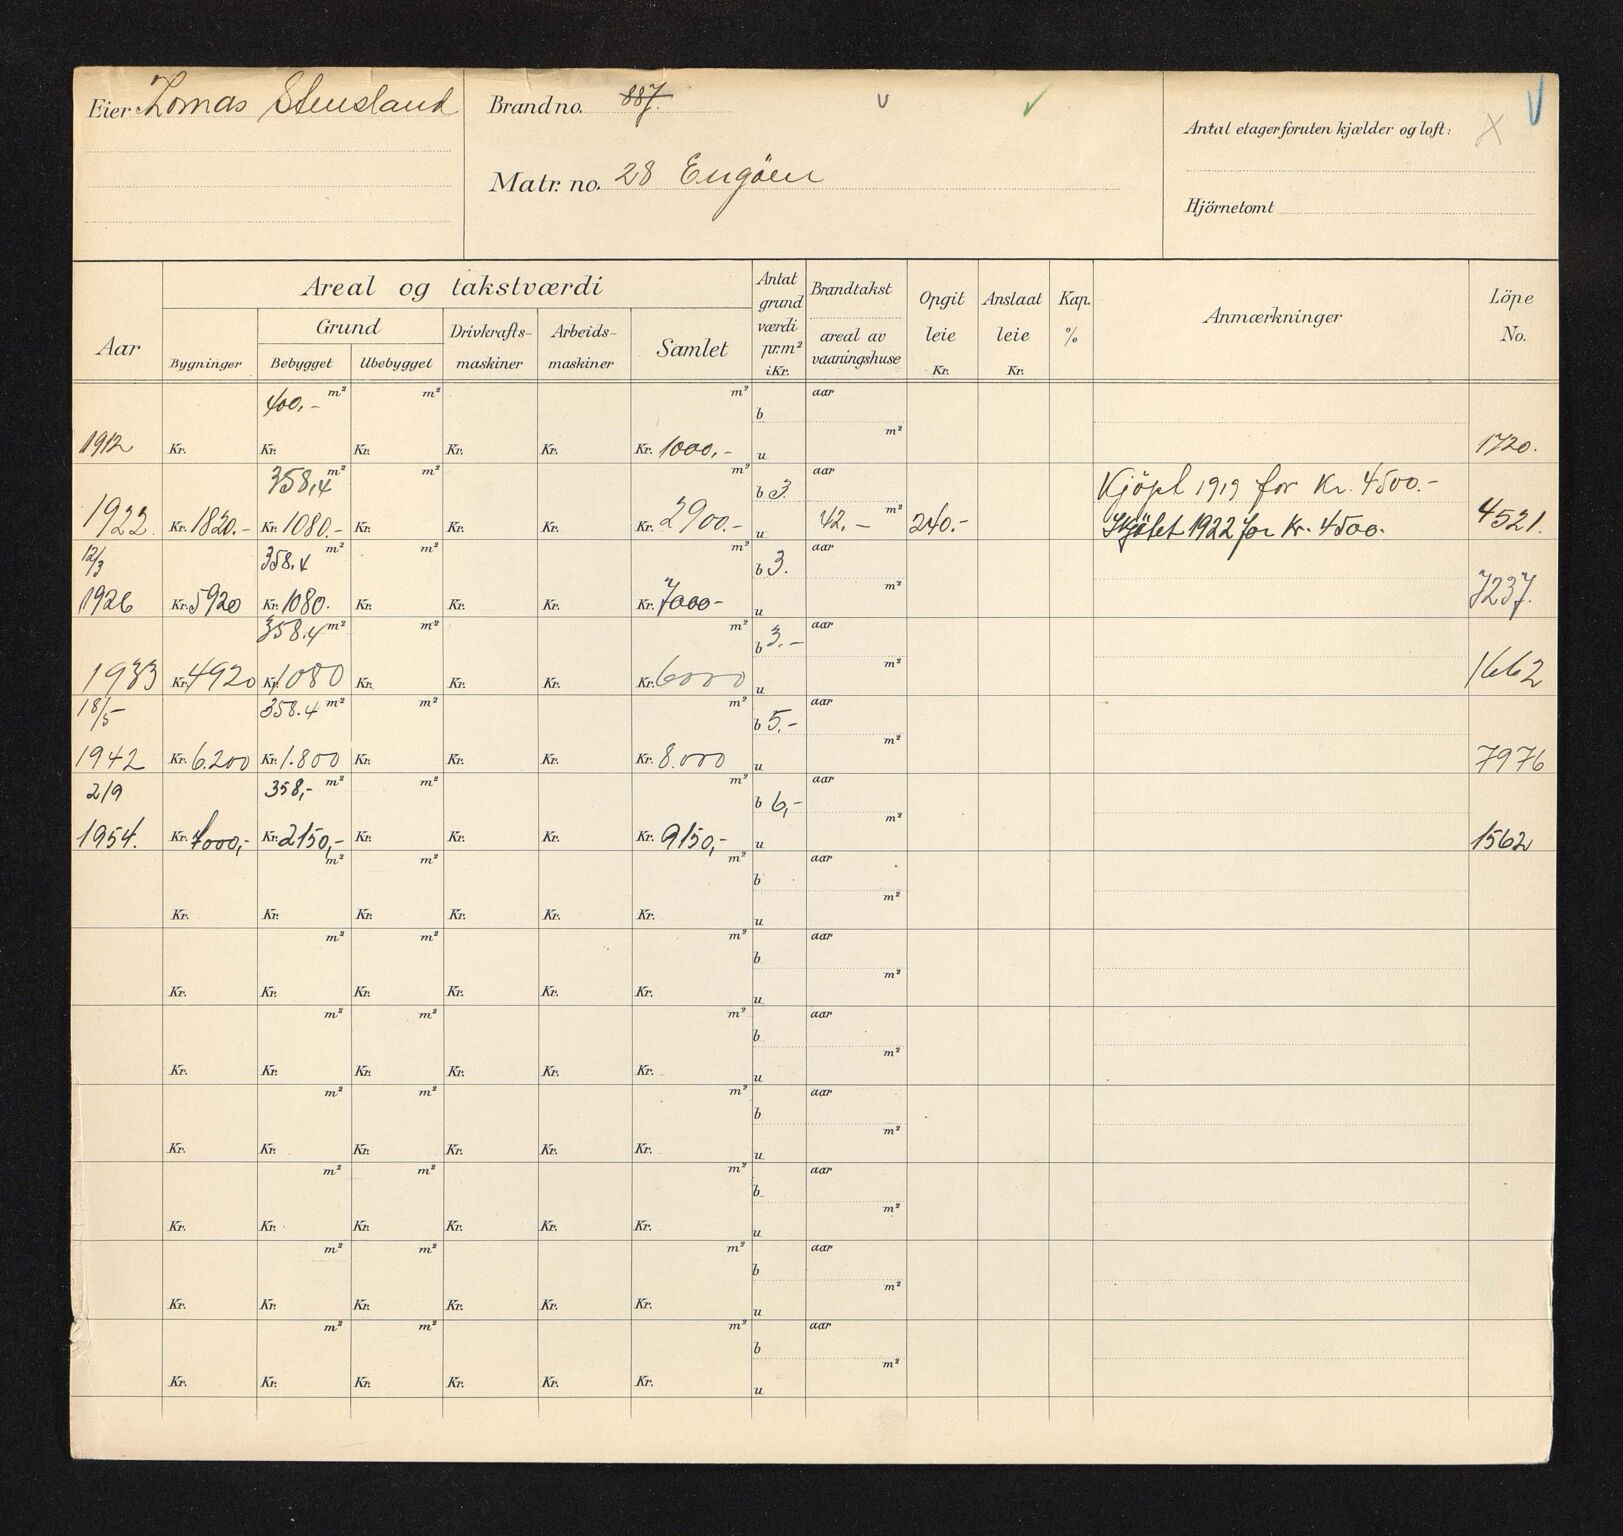 Eier Tomas Stensland
Brand no. 887.
Matr. no. 28 Engöen
Antal etager foruten kjælder og loft:
Hjörnetomt
Aar
Areal og takstværdi
Bygninger
Grund
Bebygget Ubebygget
Drivkrafts-
maskiner
Arbeids-
maskiner
Samlet
Antat
grund
værdi
pr.m²
i Kr.
Brandtakst
areal av
vaaningshuse
Opgit
leie
Kr.
Anslaat
leie
Kr.
Kap.
%
Anmærkninger
Löpe
No.
400,- m² m² m² b aar
1912 Kr. Kr. Kr. Kr. Kr. Kr. 1000,- u m² 1720.
358,4 m² m² m² b 3. aar Kjöpt 1919 for Kr. 4500.-
1922. Kr. 1820.- Kr. 1080.- Kr. Kr. Kr. Kr. 2900.- u 42,- m² 240.- Skjötet 1922 for Kr. 4500.- 4521.
12/3 358.4 m² m² m² b 3. aar
1926 Kr. 5920 Kr. 1080. Kr. Kr. Kr. Kr. 7000- u m² 7237.
358.4 m² m² m² b 3.- aar
1933 Kr. 4920 Kr. 1080 Kr. Kr. Kr. Kr. 6000 u m² 1662
18/5 358.4 m² m² m² b 5,- aar
1942 Kr. 6.200 Kr. 1.800 Kr. Kr. Kr. Kr. 8.000 u m² 7976
2/9 358,- m² m² m² b 6,- aar
1954. Kr. 7000,- Kr. 2150,- Kr. Kr. Kr. Kr. 9150,- u m² 1562
m² m² m² b aar
Kr. Kr. Kr. Kr. Kr. Kr. u m²
m² m² m² b aar
Kr. Kr. Kr. Kr. Kr. Kr. u m²
m² m² m² b aar
Kr. Kr. Kr. Kr. Kr. Kr. u m²
m² m² m² b aar
Kr. Kr. Kr. Kr. Kr. Kr. u m²
m² m² m² b aar
Kr. Kr. Kr. Kr. Kr. Kr. u m²
m² m² m² b aar
Kr. Kr. Kr. Kr. Kr. Kr. u m²
m² m² m² b aar
Kr. Kr. Kr. Kr. Kr. Kr. u m²